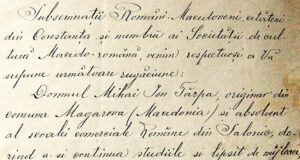 Subsemnații Români-Macedoneni cetățeni
din Constanța și membrii ai Societăței de cul-
tură Macedo-română, venim respectuoși a Vă
supune următoare rugăciune:
Domnul Mihai Ion Tărpa, originar din
comuna Magarova (Macedonia) și absolvent
al școalei comerciale Române din Salonic, do-
rind a-și continua studiile și lipsit de mijloace